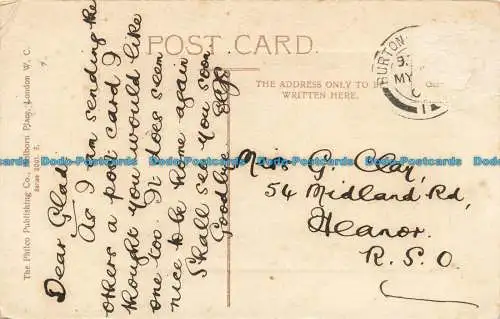 POST CARD.
THE ADDRESS ONLY TO BE
WRITTEN HERE.
BURTON
MY
The Philco Publishing Co., Holborn Place, London W. C.
Dear Glad,
As I am sending the
others a post card I
thought you would like
one too. It does seem
nice to be home again
Shall see you soon
Goodbye
Miss G. Clay,
54 Midland Rd,
Heanor.
R. S. O.
Dodo-Postcards Dodo-Postcards Dodo-Postcards Dodo-Postcards Dodo-Postcards Dodo-Postcards